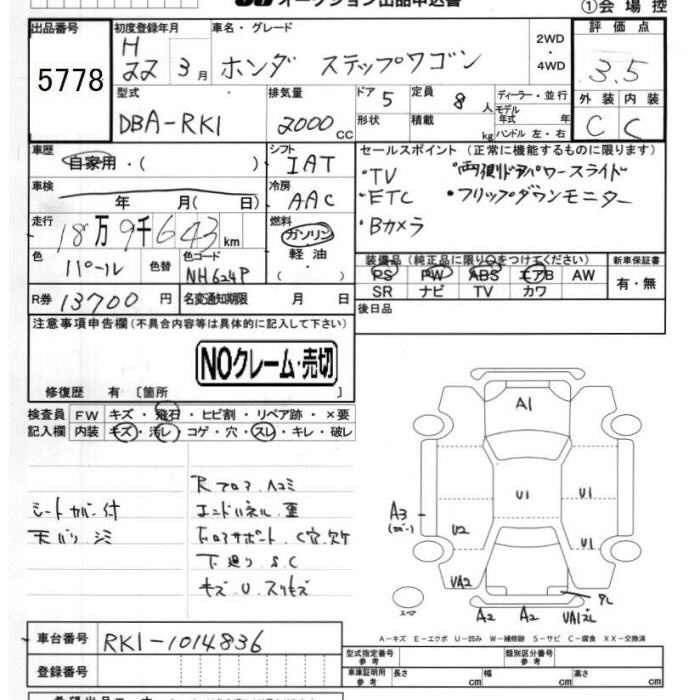 オークション出品申込書
①会場控
出品番号 初度登録年月 車名・グレード 評価点
5778 H22 3月 ホンダ ステップワゴン 2WD・4WD 3.5
型式 排気量 ドア 5 定員 8人 ディーラー・並行 外装 内装
DBA-RK1 2000cc 形状 積載 kg モデル年式 年 ハンドル 左・右 C C
車歴 自家用・( ) シフト IAT セールスポイント (正常に機能するものに限ります)
車検 年 月( 日) 冷房 AAC ・TV ・両側ドアパワースライド
・ETC ・フリップダウンモニター
走行 18万9千643km 燃料 ガソリン 軽油 ( ) ・Bカメラ
色 パール 色替 色コード NH624P 装備品 (純正品に限り○をつけてください) 新車保証書
PS PW ABS エアB AW 有・無
R券 13700円 名変通知期限 月 日 SR ナビ TV カワ
注意事項申告欄(不具合内容等は具体的に記入して下さい) 後日品
NOクレーム・売切
修復歴 有 〔箇所 〕
検査員 FW キズ・飛石・ヒビ割・リペア跡・×要
記入欄 内装 キズ・汚レ・コゲ・穴・スレ・キレ・破レ
Rフロア.ヘコミ
シートカバー付 エンドパネル.歪
天バリ シミ
下廻り.S.C
キズ.U.スリキズ
A1
U1 U1
A3
(カバー)
U2 U1
UA2
スペア A2 A2
A-キズ E-エクボ U-凹み W-補修跡 S-サビ C-腐食 XX-交換済
車台番号 RK1-1014836
型式指定番号 参考 類別区分番号 参考
登録番号 車庫証明用 参考 長さ cm 幅 cm 高さ cm